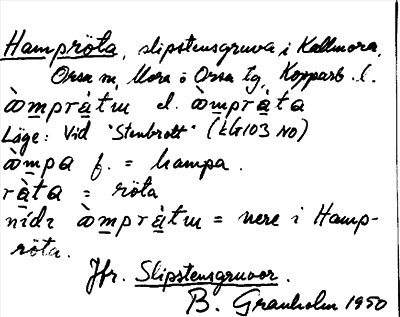 Hampröta, slipstensgruva i Kallmora,
Orsa sn, Mora o Orsa tg, Kopparb. l.
òmpràtu el. òmpràta
Läge: Vid "Stenbrott" (EG103 NO)
òmpa f. = hampa.
ràta = röta
nídɪ òmpràtu = nere i Hamp-
röta.
Jfr. Slipstensgruvor.
B. Granholm 1950